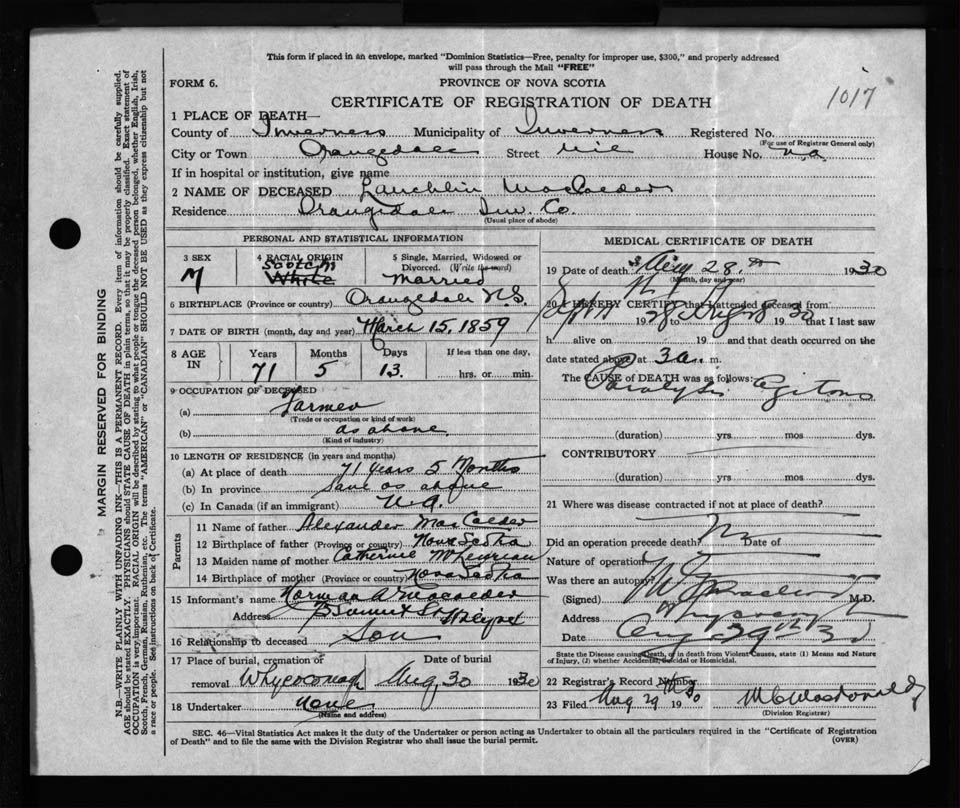 This form if placed in an envelope, marked "Dominion Statistics—Free, penalty for improper use, $300," and properly addressed
will pass through the Mail "FREE"
FORM 6. PROVINCE OF NOVA SCOTIA
CERTIFICATE OF REGISTRATION OF DEATH 1017
1 PLACE OF DEATH—
County of Inverness Municipality of Inverness Registered No.
(For use of Registrar General only)
City or Town Orangedale Street nil House No. n.a.
If in hospital or institution, give name
2 NAME OF DECEASED Lauchlin
Residence Orangedale Inv. Co.
(Usual place of abode)
PERSONAL AND STATISTICAL INFORMATION
3 SEX 4 RACIAL ORIGIN 5 Single, Married, Widowed or
Divorced. (Write the word)
M Scotch White Married
6 BIRTHPLACE (Province or country) Orangedale N.S.
7 DATE OF BIRTH (month, day and year) March 15, 1859
8 AGE IN Years Months Days If less than one day,
71 5 13 hrs. or min.
9 OCCUPATION OF DECEASED
(a) Farmer
(Trade or occupation or kind of work)
(b) as above
(Kind of industry)
10 LENGTH OF RESIDENCE (in years and months)
(a) At place of death 71 years 5 Months
(b) In province Same as above
(c) In Canada (if an immigrant) N.A.
Parents
11 Name of father Alexander
12 Birthplace of father (Province or country) Nova Scotia
13 Maiden name of mother Catherine
14 Birthplace of mother (Province or country) Nova Scotia
15 Informant's name Norman
Address
16 Relationship to deceased Son
17 Place of burial, cremation or Date of burial
removal Whycocomagh Aug 30 1930
18 Undertaker none
(Name and address)
MEDICAL CERTIFICATE OF DEATH
19 Date of death Aug 28th 1930
(Month, day and year)
20 I HEREBY CERTIFY that I attended deceased from
1928 to Aug 28 1930 that I last saw
h alive on 19 and that death occurred on the
date stated above at 3 a. m.
The CAUSE of DEATH was as follows: Paralysis Agitans
(duration) yrs mos dys.
CONTRIBUTORY
(duration) yrs mos dys.
21 Where was disease contracted if not at place of death?
Did an operation precede death? Date of
Nature of operation
Was there an autopsy?
(Signed) M.D.
Address
Date Aug 29th 30
State the Disease causing Death, or in death from Violent Causes, state (1) Means and Nature
of Injury, (2) whether Accidental, Suicidal or Homicidal.
22 Registrar's Record Number
23 Filed Aug 29 1930 MacDonald
(Division Registrar)
SEC. 46—Vital Statistics Act makes it the duty of the Undertaker or person acting as Undertaker to obtain all the particulars required in the "Certificate of Registration
of Death" and to file the same with the Division Registrar who shall issue the burial permit. (OVER)
MARGIN RESERVED FOR BINDING
N.B.—WRITE PLAINLY WITH UNFADING INK—THIS IS A PERMANENT RECORD. Every item of information should be carefully supplied.
AGE should be stated EXACTLY. PHYSICIANS should STATE CAUSE OF DEATH in plain terms, so that it may be properly classified. Exact statement of
OCCUPATION is very important. RACIAL ORIGIN will be described by stating to what people or tongue the deceased person belonged, whether English, Irish,
Scotch, French, German, Russian, Ruthenian, etc. The terms "AMERICAN" or "CANADIAN" SHOULD NOT BE USED as they express citizenship but not
a race or people. See instructions on back of Certificate.